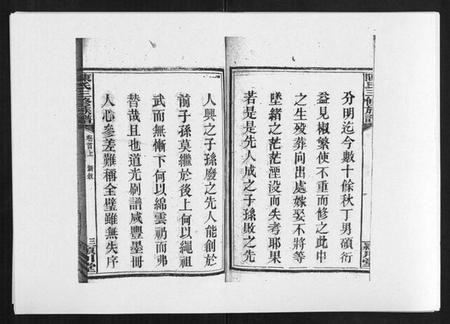 陳氏三修族譜
潁川堂
分明迄今數十餘秋丁男碩衍
益見椒繁使不重而修之此中
之生歿葬向出處嫁娶不將等
墜緒之茫茫湮沒而失考耶果
若是是先人成之子孫敗之先
人興之子孫廢之先人能創於
前子孫莫繼於後上何以繩祖
武而無慚下何以綿雲礽而弗
替哉且也道光剧譜咸豐墨冊
人心參差難稱全璧雖無失序
陳氏三修族譜
卷首上
新敘
三
潁川堂